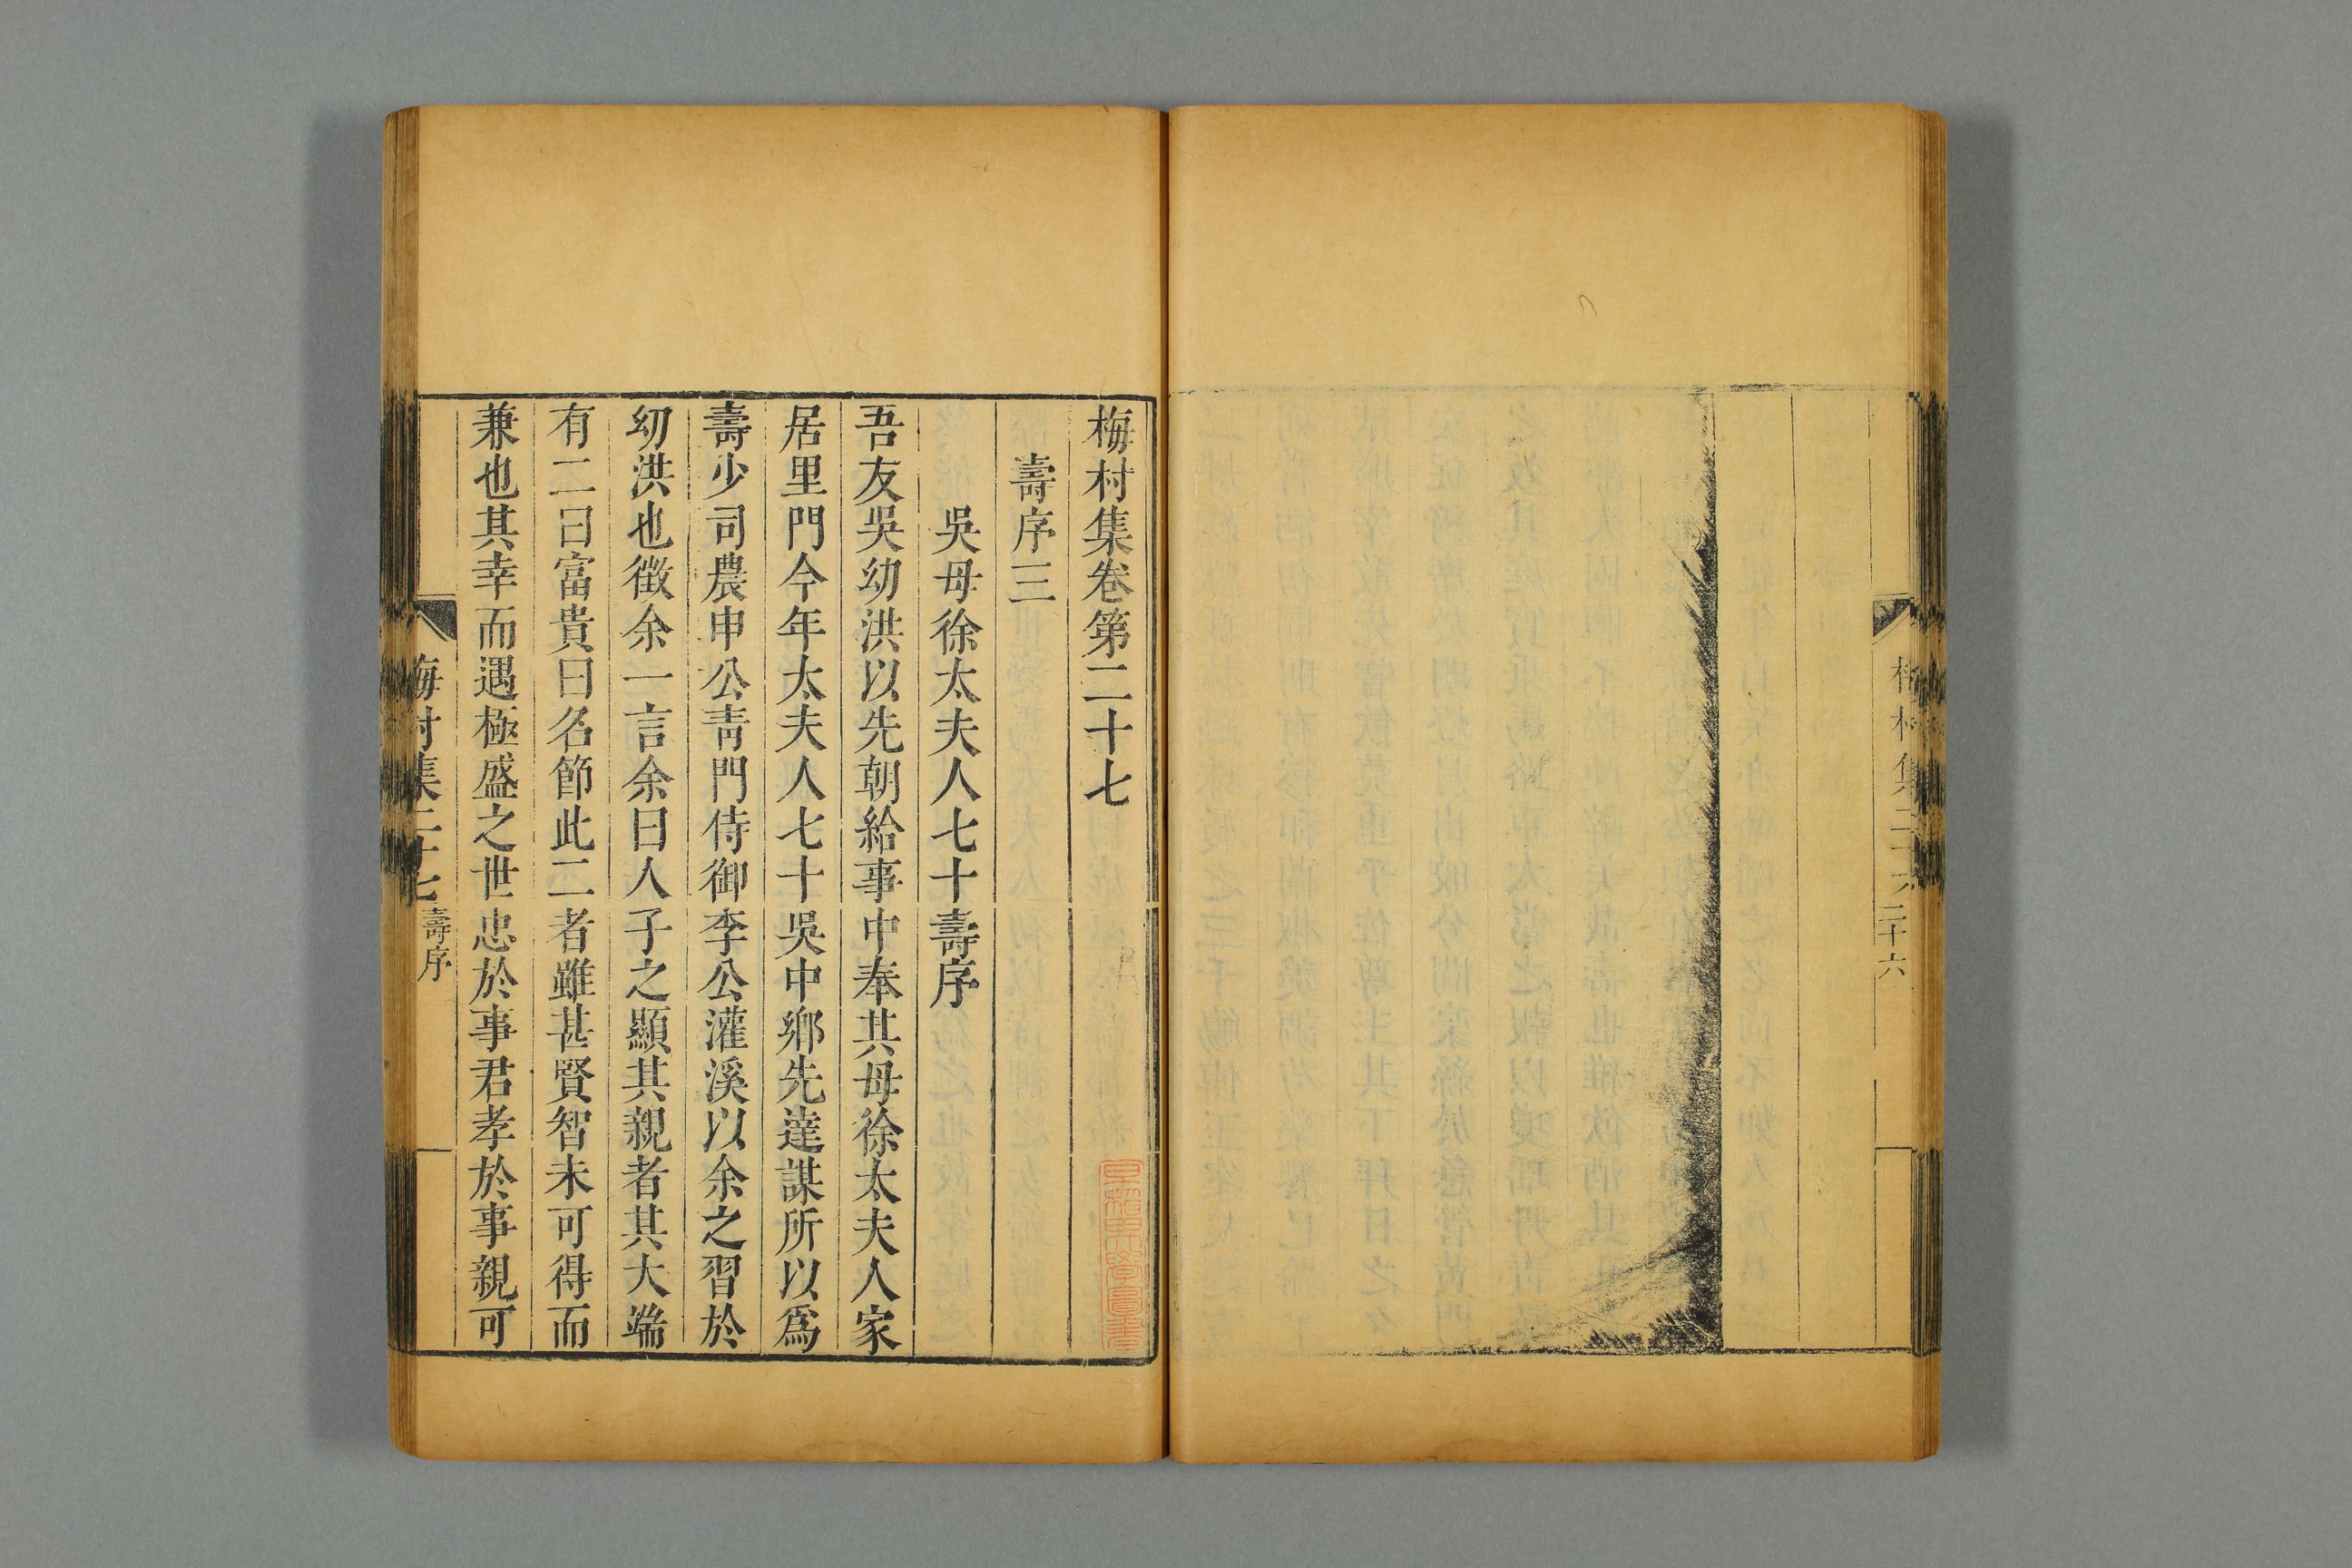 梅村集二十六 二十六
梅村集卷第二十七
壽序三
吳母徐太夫人七十壽序
吾友吳幼洪以先朝給事中奉其母徐太夫人家
居里門今年太夫人七十吳中鄉先達謀所以爲
壽少司農申公靑門侍御李公灌溪以余之習於
幼洪也徵余一言余曰人子之顯其親者其大端
有二曰富貴曰名節此二者雖甚賢智未可得而
兼也其幸而遇極盛之世忠於事君孝於事親可
梅村集二十七 壽序